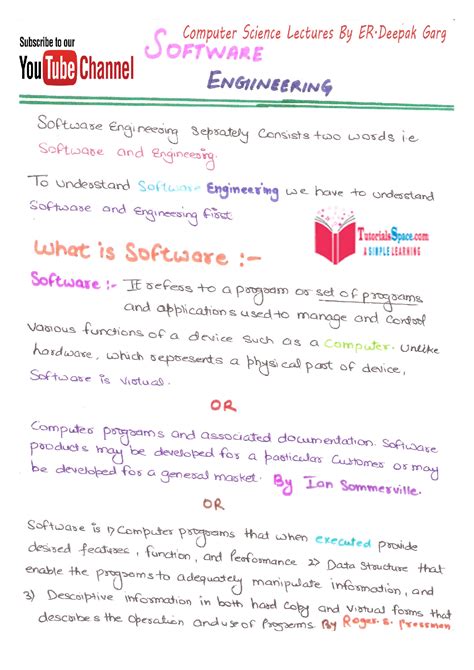 Computer Science Lectures By ER.Deepak Garg
Subscribe to our
YouTube Channel
SOFTWARE
ENGINEERING
Software Engineering Seprately Consists two words i.e
Software and Engineering.
To understand Software Engineering we have to understand
Software and Engineering first
TutorialsSpace.com
A SIMPLE LEARNING
What is Software :-
Software :- It refers to a program or set of programs
and applications used to manage and Control
Various functions of a device such as a Computer. Unlike
hardware, which represents a physical part of device,
Software is Virtual.
OR
Computer programs and associated documentation. Software
products may be developed for a particular Customer or may
be developed for a general market. By Ian Sommerville.
OR
Software is 1) Computer programs that when executed provide
desired features, function, and Performance 2) Data Structure that
enable the programs to adequately manipulate information, and
3) Descriptive Information in both hard Copy and Virtual forms that
describes the Operation and use of Programs. By Roger. S. Pressman